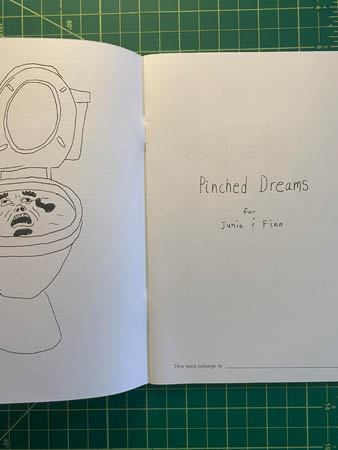 Pinched Dreams
for
Junie & Finn
This book belongs to